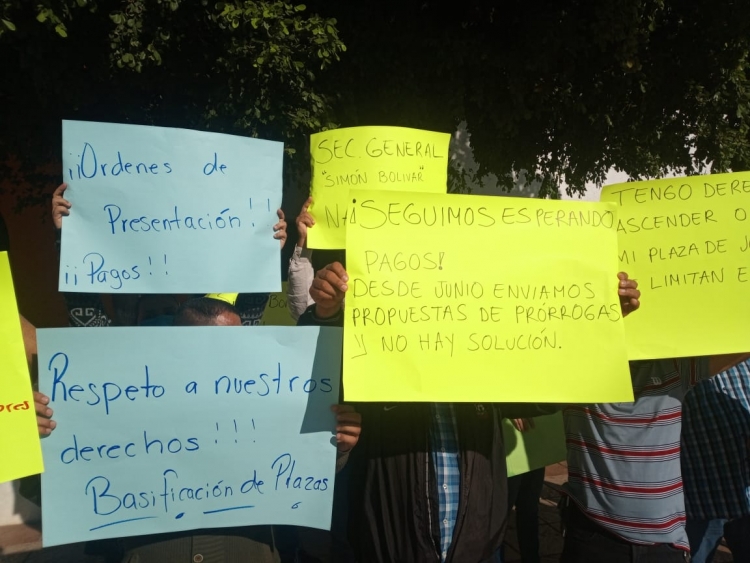 ¡¡Ordenes de
Presentación!!
¡¡Pagos!!
SEC. GENERAL
"SIMÓN BOLIVAR"
¡SEGUIMOS ESPERANDO
PAGOS!
DESDE JUNIO ENVIAMOS
PROPUESTAS DE PRÓRROGAS
Y NO HAY SOLUCIÓN.
TENGO DERE
ASCENDER O
MI PLAZA DE
LIMITAN E
Respeto a nuestros
derechos!!!
Basificación de Plazas
ores